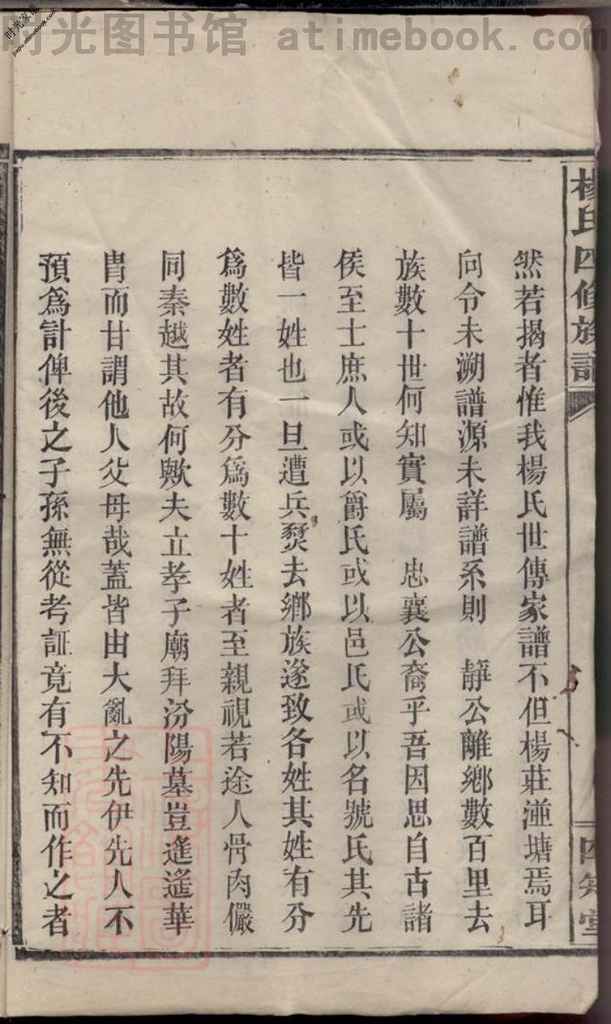 时光图书馆 atimebook.com
楊氏四修族譜
四知堂
然若揭者惟我楊氏世傳家譜不但楊莊湩塘焉耳
向令未溯譜源未詳譜系則 靜公離鄉數百里去
族數十世何知實屬 忠襄公裔乎吾因思自古諸
侯至士庶人或以爵氏或以邑氏或以名號氏其先
皆一姓也一旦遭兵燹去鄉族遂致各姓其姓有分
爲數姓者有分爲數十姓者至親視若途人骨肉儼
同秦越其故何歟夫立孝子廟拜汾陽墓豈遙遙華
冑而甘謂他人父母哉蓋皆由大亂之先伊先人不
預爲計俾後之子孫無從考証竟有不知而作之者